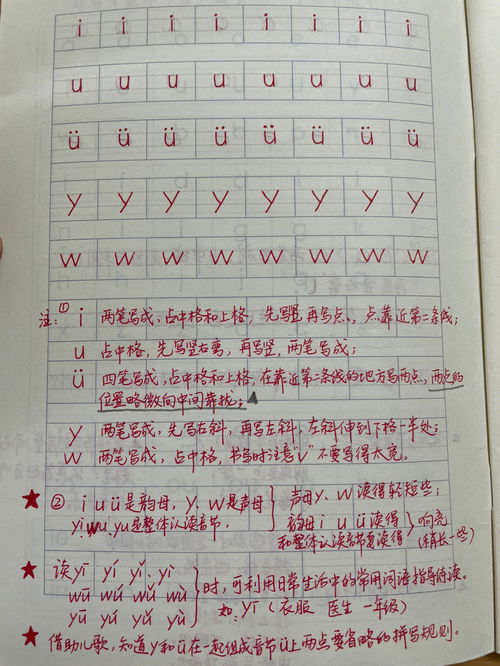 i i i i i i i i
u u u u u u u u
ü ü ü ü ü ü ü ü
y y y y y y y y
w w w w w w w w
注:① i 两笔写成,占中格和上格,先写竖再写点,点靠近第二条线;
u 占中格,先写竖右弯,再写竖,两笔写成;
ü 四笔写成,占中格和上格,在靠近第二条线的地方写两点,两点的
位置略微向中间靠拢;
y 两笔写成,先写右斜,再写左斜,左斜伸到下格一半处;
w 两笔写成,占中格,书写时注意"v"不要写得太宽。
★ ② i u ü是韵母,y、w是声母 } 声母y、w读得轻短些;
yi、wu、yu是整体认读音节, 韵母 i u ü读得 } 响亮
和整体认读音节要读得 (稍长一些)
★ 读yī yí yǐ yì
wū wú wǔ wù } 时,可利用日常生活中的常用词语指导练读。
yū yú yǔ yù 如:yī(衣服 医生 一年级)
★ 借助儿歌,知道y和ü在一起组成音节ü上两点要省略的拼写规则。